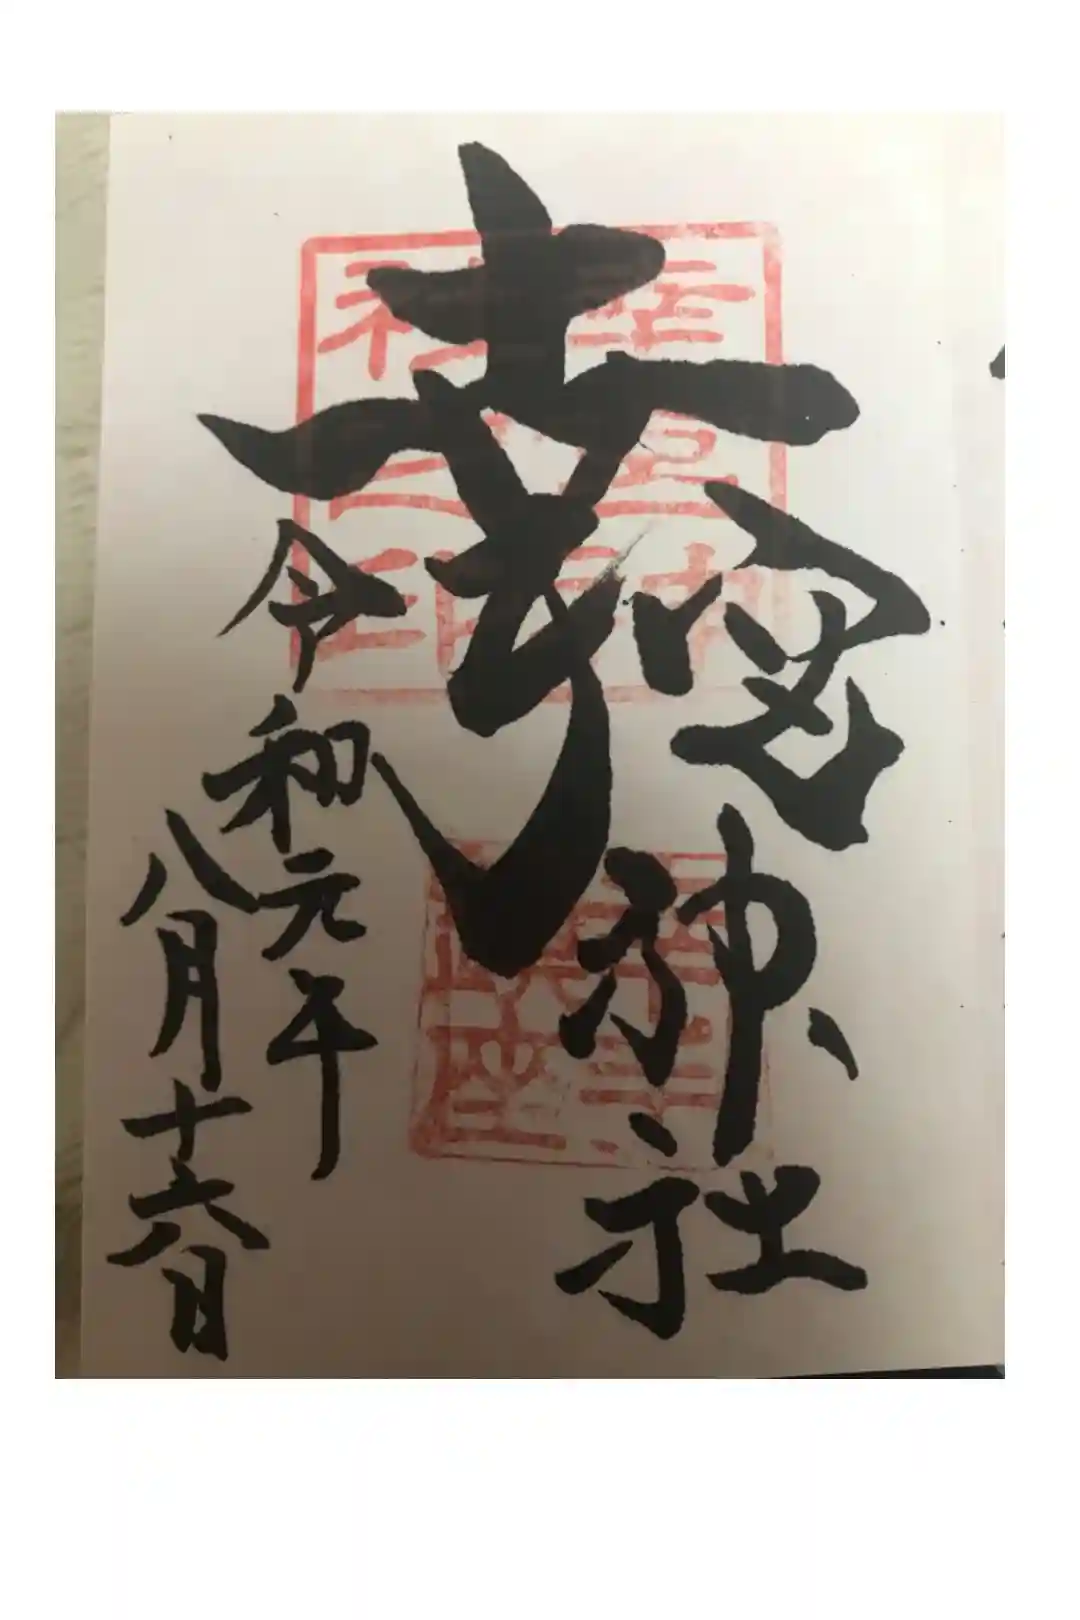 幸宮神社
令和元年
八月十六日
幸宮神
社之印